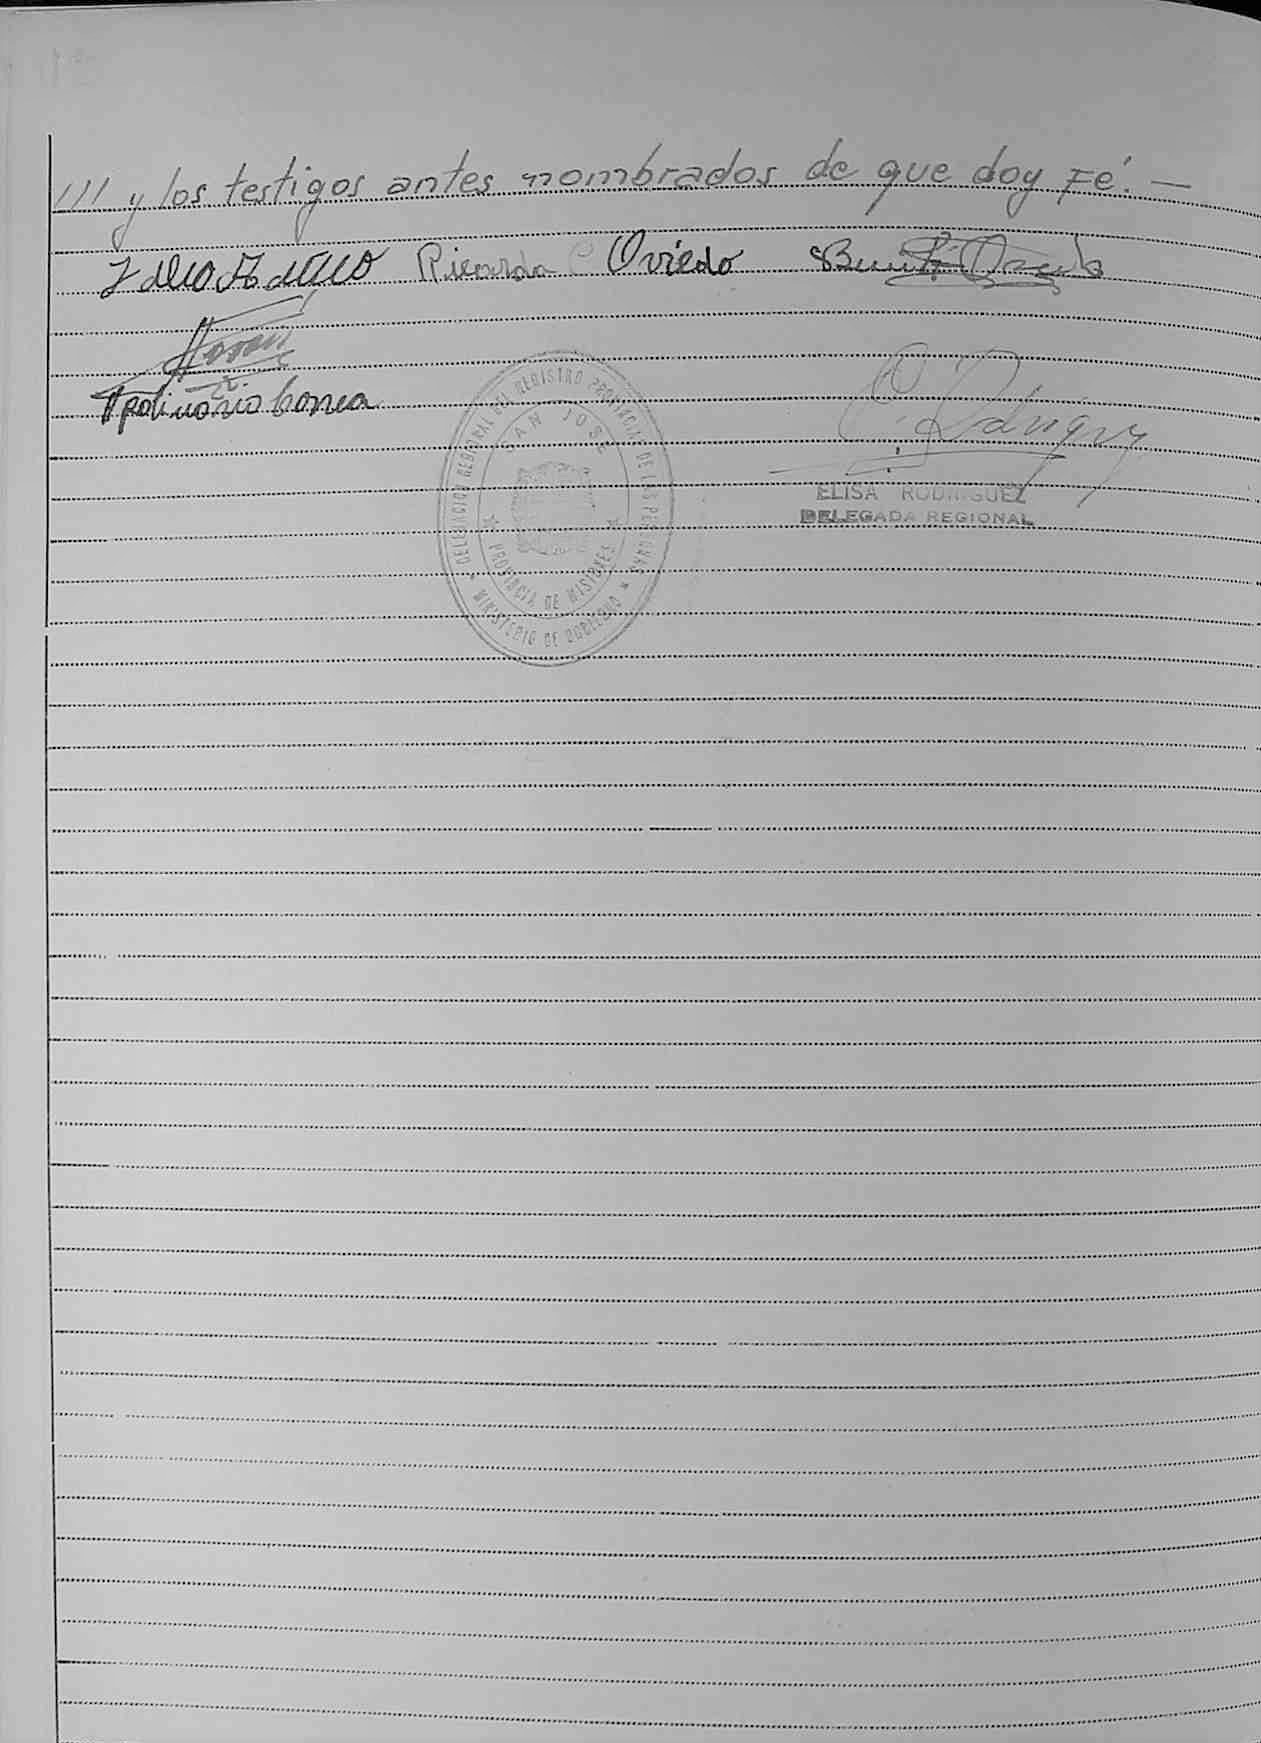 /// y los testigos antes nombrados de que doy Fé. —
Ricarda C Oviedo
Apolinario Correa
DELEGACION REGIONAL DEL REGISTRO PROVINCIAL DE LAS PERSONAS
SAN JOSE
PROVINCIA DE MISIONES
MINISTERIO DE GOBIERNO
ELISA RODRIGUEZ
DELEGADA REGIONAL